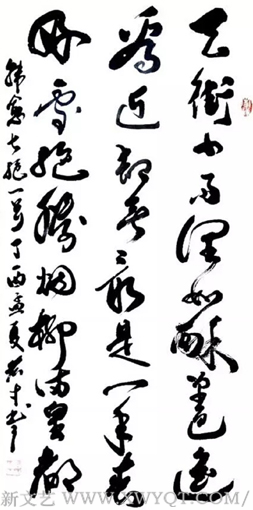 天街小雨潤如酥草色遥
看近却無最是一年春
好處絶勝烟柳满皇都
韩愈七绝一首丁酉孟夏书
新文艺 WWW.XWYQT.COM/